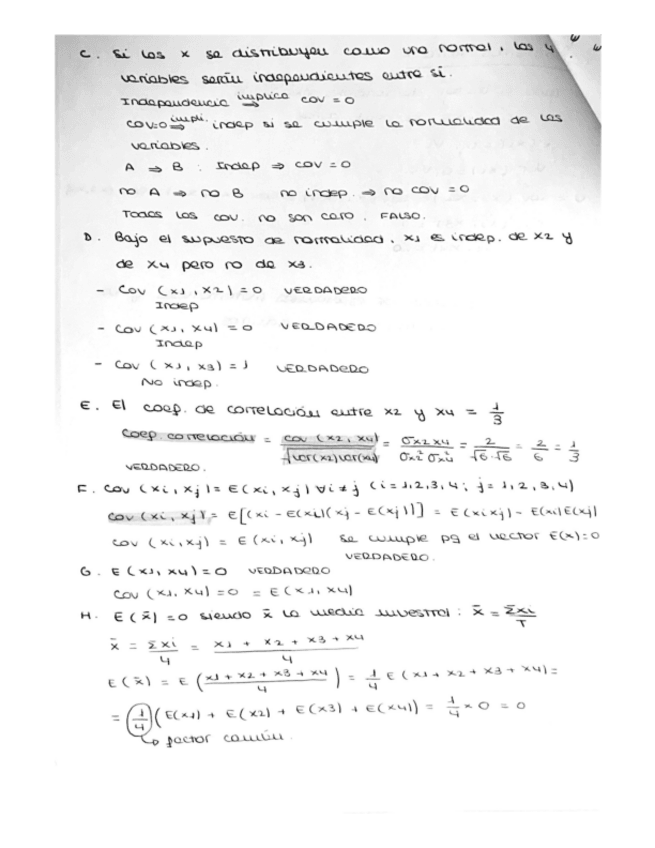 C. Si las x se distribuyen como una normal, las 4
variables serán independientes entre sí.
Independencia implica ⇒ cov = 0
cov=0 impli. ⇒ indep si se cumple la normalidad de las
variables.
A ⇒ B : Indep ⇒ cov = 0
no A ⇒ no B no indep. ⇒ no cov = 0
Todas las cov. no son cero. FALSO.
D. Bajo el supuesto de normalidad, x1 es indep. de x2 y
de x4 pero no de x3.
- Cov (x1, x2) = 0 VERDADERO
Indep
- Cov (x1, x4) = 0 VERDADERO
Indep
- Cov (x1, x3) = 1 VERDADERO
No indep.
E. El coep. de correlación entre x2 y x4 = 1/3
Coep. correlación = cov (x2, x4) / √var(x2)var(x4) = σx2x4 / σx2² σx4² = 2 / √6·√6 = 2/6 = 1/3
VERDADERO.
F. Cov (xi, xj) = E(xi, xj) ∀i ≠ j (i = 1,2,3,4; j = 1,2,3,4)
cov (xi, xj) = E[(xi - E(xi)(xj - E(xj))] = E(xixj) - E(xi)E(xj)
cov (xi,xj) = E(xi, xj) se cumple pq el vector E(x)=0
VERDADERO.
G. E(x1, x4) = 0 VERDADERO
Cov (x1, x4) = 0 = E(x1, x4)
H. E(x̄) = 0 siendo x̄ la media muestral : x̄ = Σxi/T
x̄ = Σxi/4 = x1 + x2 + x3 + x4 / 4
E(x̄) = E (x1 + x2 + x3 + x4 / 4) = 1/4 E(x1 + x2 + x3 + x4) =
= (1/4) (E(x1) + E(x2) + E(x3) + E(x4)) = 1/4 × 0 = 0
↳ factor común.